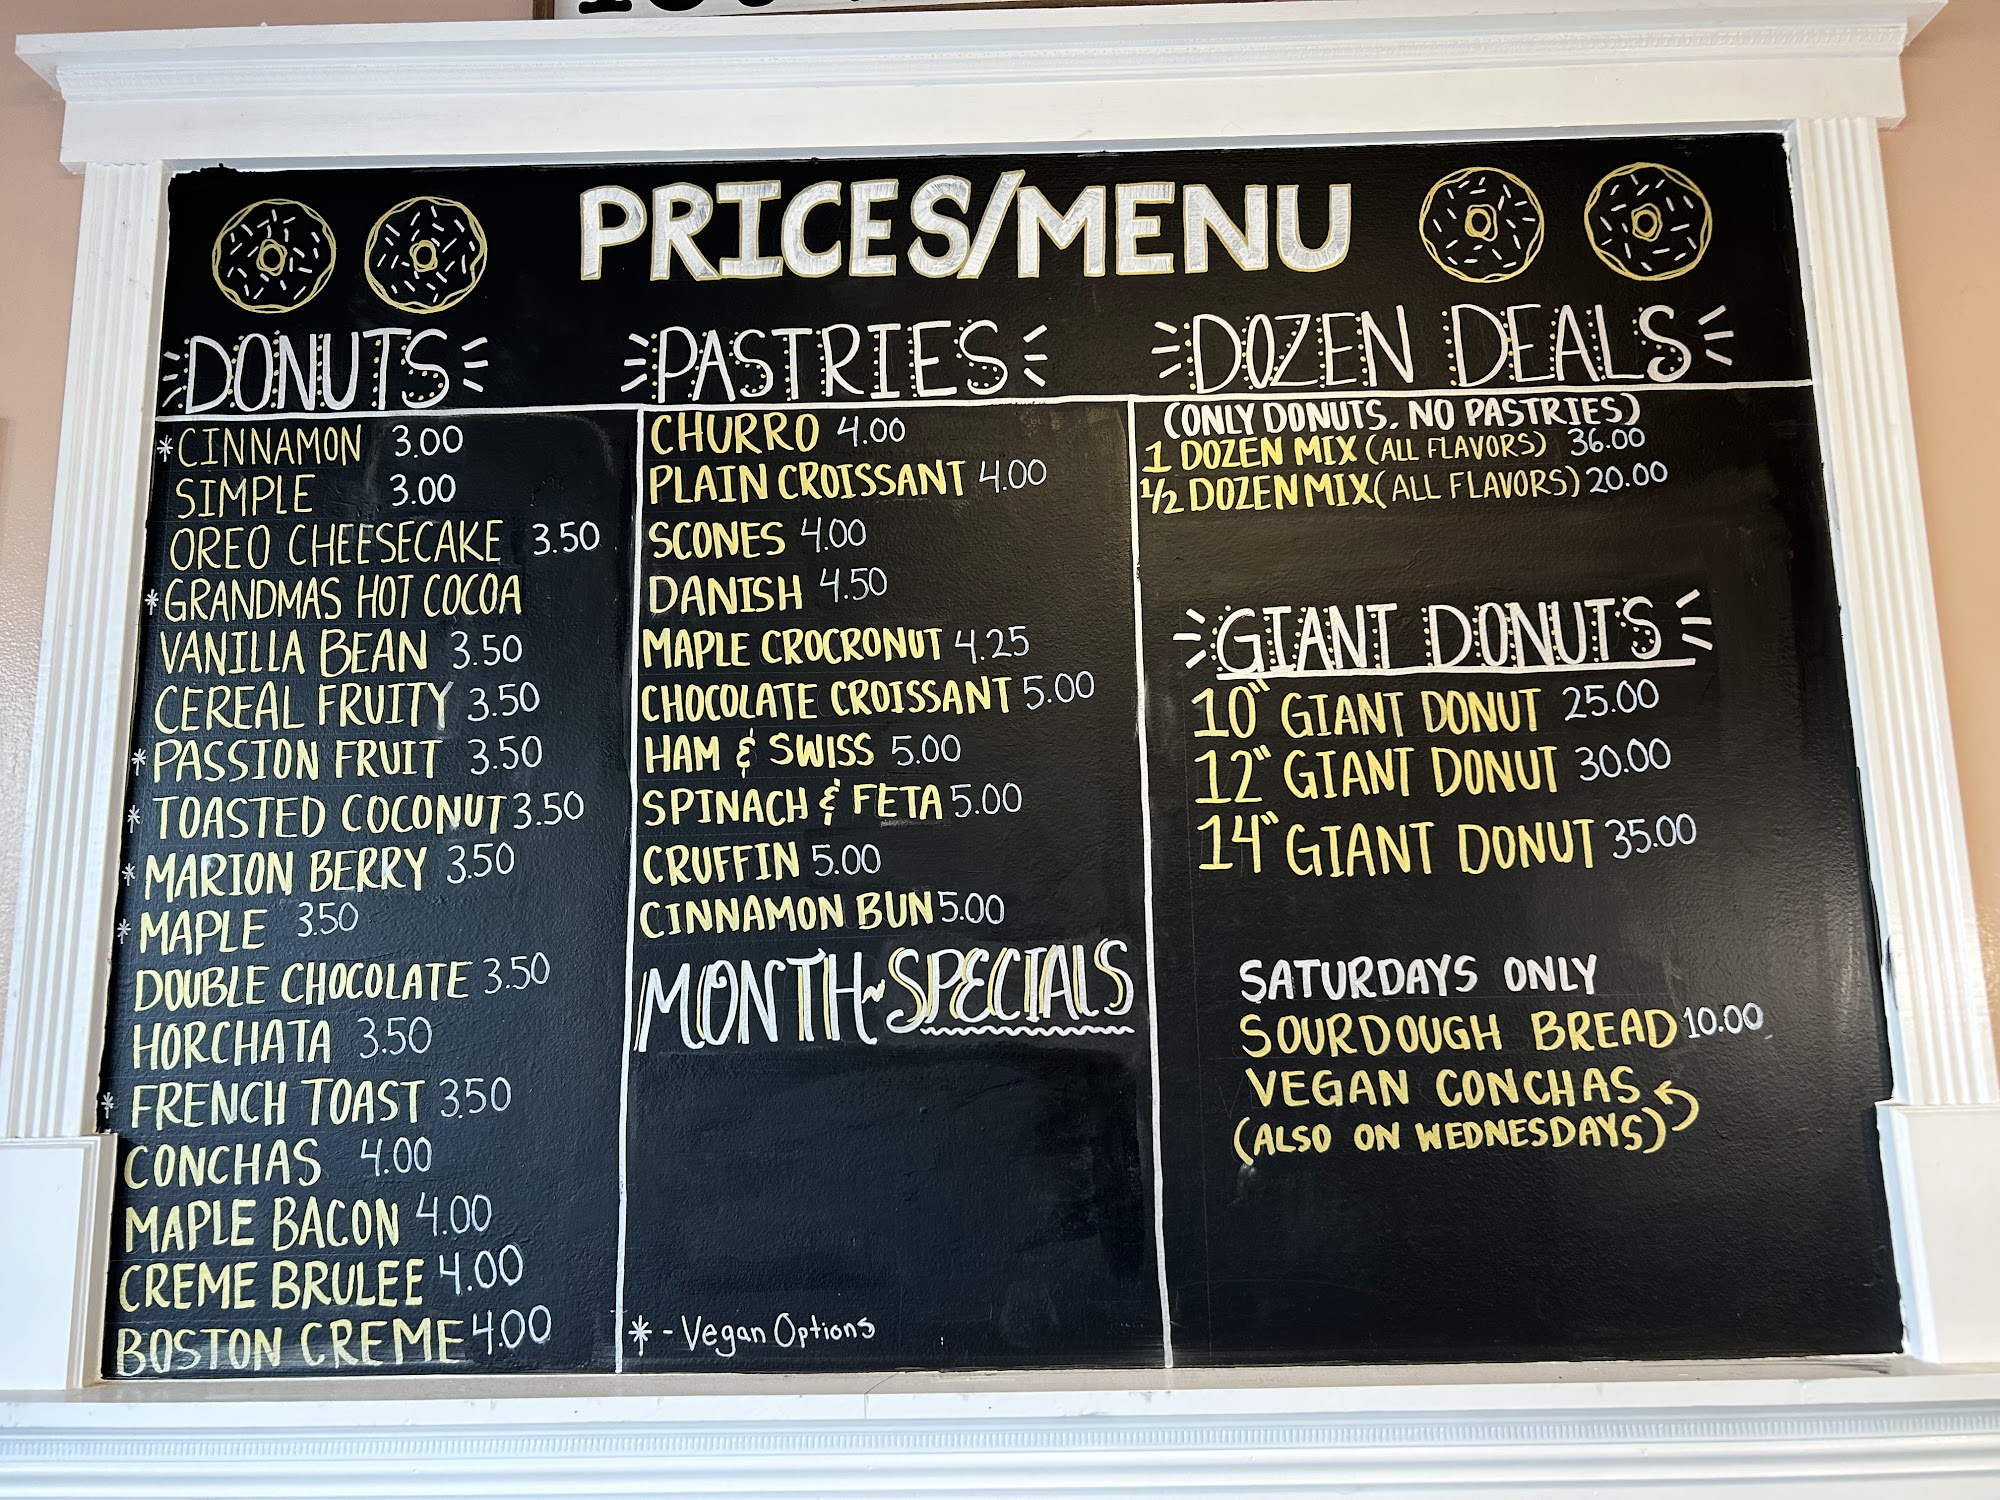 PRICES/MENU
DONUTS
*CINNAMON 3.00
SIMPLE 3.00
OREO CHEESECAKE 3.50
*GRANDMAS HOT COCOA
VANILLA BEAN 3.50
CEREAL FRUITY 3.50
*PASSION FRUIT 3.50
*TOASTED COCONUT 3.50
*MARION BERRY 3.50
*MAPLE 3.50
DOUBLE CHOCOLATE 3.50
HORCHATA 3.50
*FRENCH TOAST 3.50
CONCHAS 4.00
MAPLE BACON 4.00
CREME BRULEE 4.00
BOSTON CREME 4.00
PASTRIES
CHURRO 4.00
PLAIN CROISSANT 4.00
SCONES 4.00
DANISH 4.50
MAPLE CROCRONUT 4.25
CHOCOLATE CROISSANT 5.00
HAM & SWISS 5.00
SPINACH & FETA 5.00
CRUFFIN 5.00
CINNAMON BUN 5.00
MONTH~SPECIALS
* - Vegan Options
DOZEN DEALS
(ONLY DONUTS. NO PASTRIES)
1 DOZEN MIX (ALL FLAVORS) 36.00
1/2 DOZEN MIX (ALL FLAVORS) 20.00
GIANT DONUTS
10" GIANT DONUT 25.00
12" GIANT DONUT 30.00
14" GIANT DONUT 35.00
SATURDAYS ONLY
SOURDOUGH BREAD 10.00
VEGAN CONCHAS
(ALSO ON WEDNESDAYS)